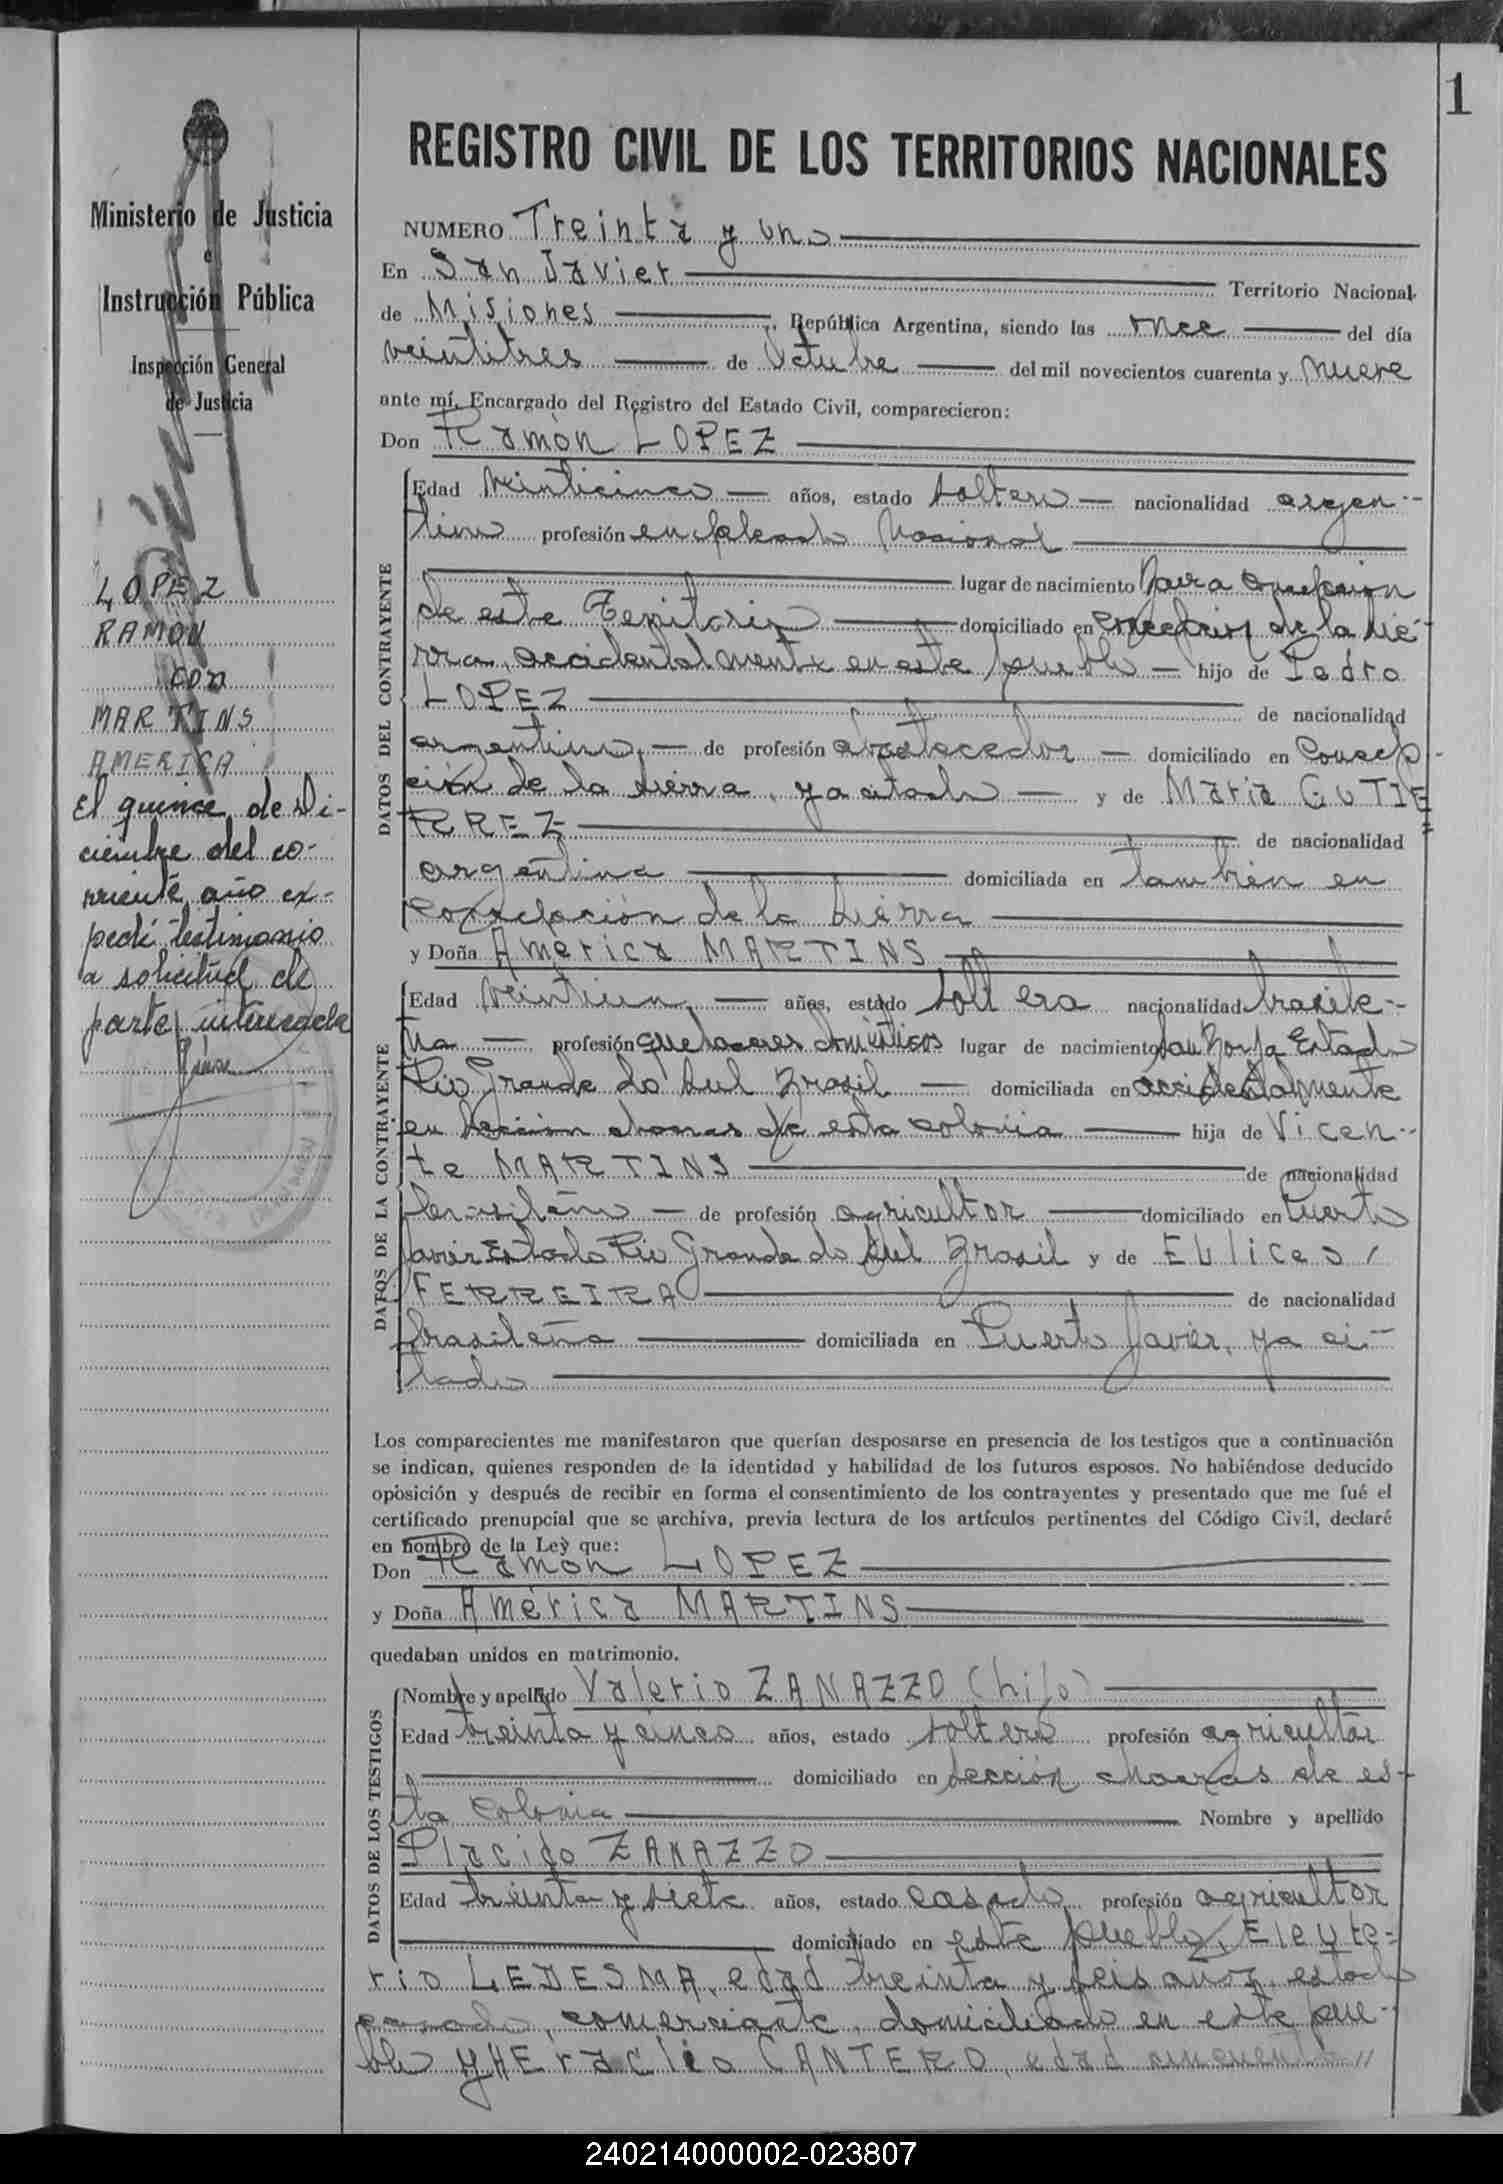 1
Ministerio de Justicia
e
Instrucción Pública
Inspección General
de Justicia
LOPEZ
RAMON
con
MARTINS
AMERICA
El quince de Di-
ciembre del co-
rriente año ex-
pedí testimonio
a solicitud de
parte interesada
REGISTRO CIVIL DE LOS TERRITORIOS NACIONALES
NUMERO Treinta y uno
En San Javier Territorio Nacional
de Misiones, República Argentina, siendo las once del día
veintitres de Octubre del mil novecientos cuarenta y nueve
ante mí, Encargado del Registro del Estado Civil, comparecieron:
Don Ramón LOPEZ
DATOS DEL CONTRAYENTE
Edad veinticinco años, estado soltero nacionalidad argen-
tino profesión empleado Nacional
lugar de nacimiento Concepcion
de este Territorio domiciliado en Concepcion de la Sie-
rra, accidentalmente en este pueblo hijo de Pedro
LOPEZ de nacionalidad
argentino, de profesión abastecedor domiciliado en Concep-
ción de la Sierra, ya citado y de María GUTIE
RREZ de nacionalidad
argentina domiciliada en tambien en
Concepción de la Sierra
y Doña America MARTINS
DATOS DE LA CONTRAYENTE
Edad veintiun años, estado soltera nacionalidad brasile-
ña profesión quehaceres domésticos lugar de nacimiento San Borja Estado
Rio Grande do Sul Brasil domiciliada en accidentalmente
en Sección chacras de esta colonia hija de Vicen-
te MARTINS de nacionalidad
brasileño de profesión agricultor domiciliado en Puerto
Javier Estado Rio Grande do Sul Brasil y de Eulices
FERREIRA de nacionalidad
brasileña domiciliada en Puerto Javier, ya ci-
tado
Los comparecientes me manifestaron que querían desposarse en presencia de los testigos que a continuación
se indican, quienes responden de la identidad y habilidad de los futuros esposos. No habiéndose deducido
oposición y después de recibir en forma el consentimiento de los contrayentes y presentado que me fué el
certificado prenupcial que se archiva, previa lectura de los artículos pertinentes del Código Civil, declaré
en nombre de la Ley que:
Don Ramon LOPEZ
y Doña América MARTINS
quedaban unidos en matrimonio.
DATOS DE LOS TESTIGOS
Nombre y apellido Valerio ZANAZZO (hijo)
Edad treinta y cinco años, estado soltero profesión agricultor
domiciliado en Sección chacras de es-
ta colonia Nombre y apellido
Placido ZANAZZO
Edad treinta y siete años, estado casado profesión agricultor
domiciliado en este pueblo, Eleute-
rio LEDESMA, edad treinta y seis años, estado
casado, comerciante, domiciliado en este pue-
blo y Heraclio CANTERO, edad cincuenta
240214000002-023807